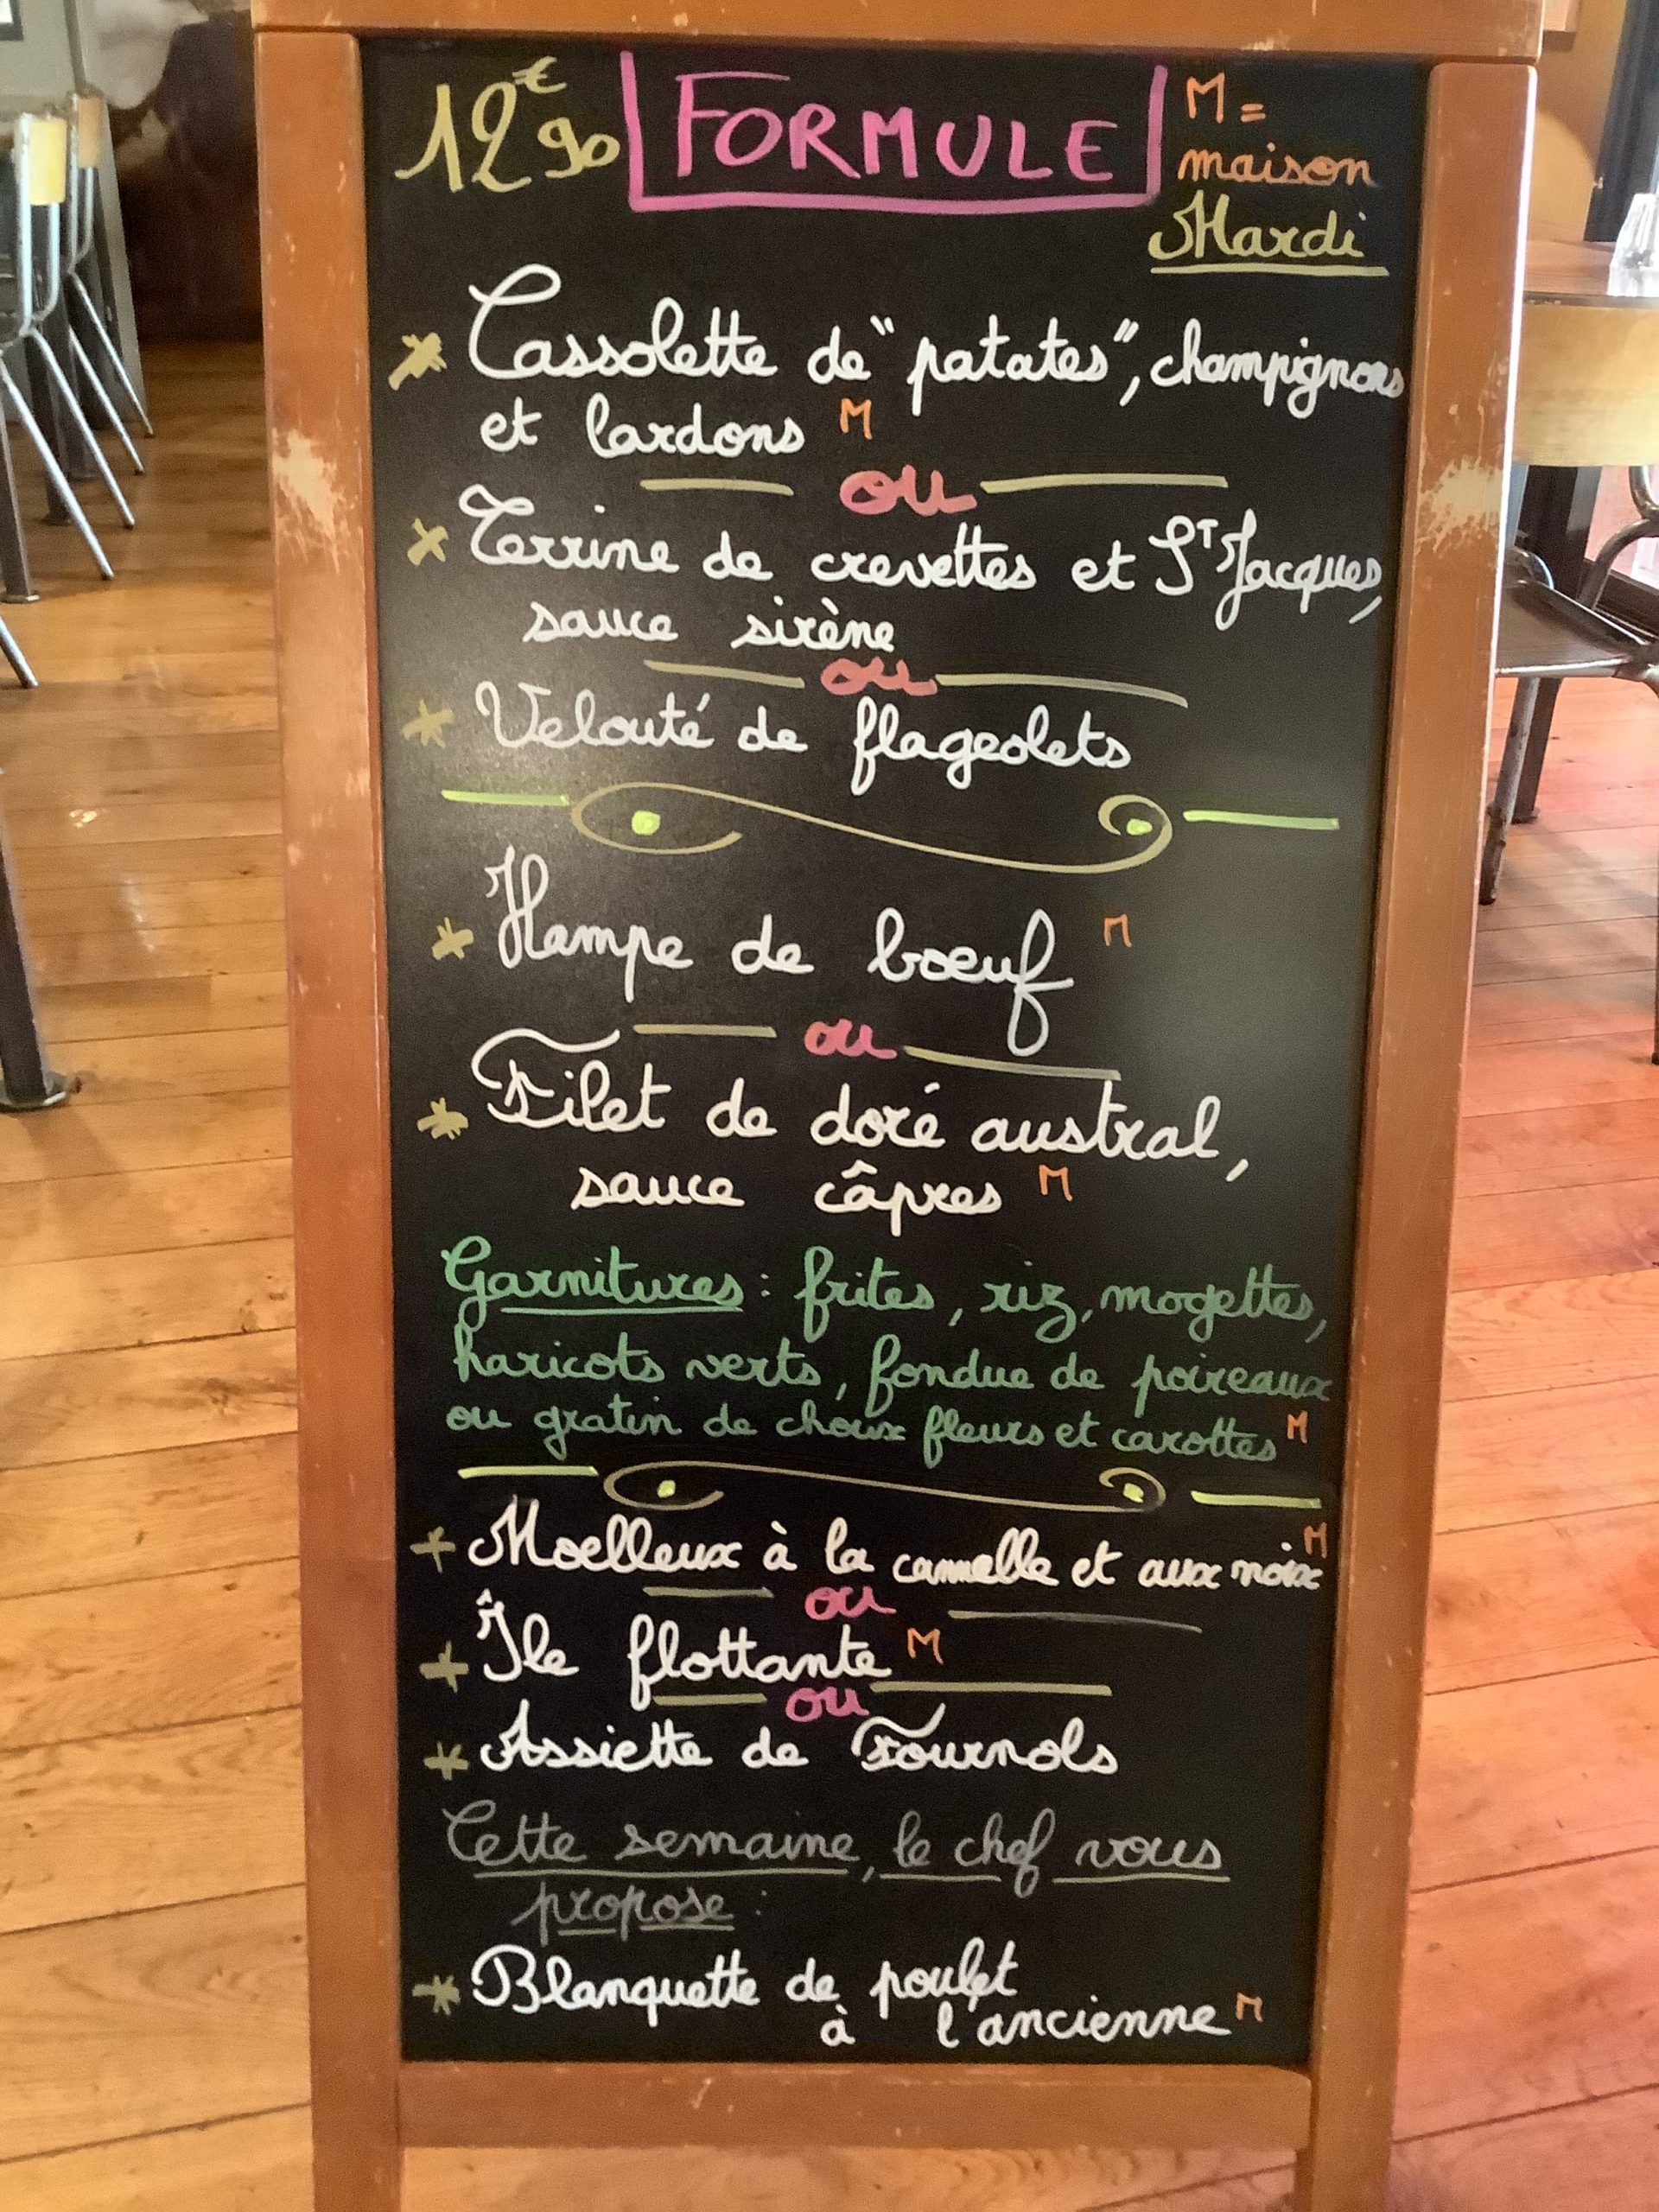 12€90 FORMULE M =
maison
Mardi
Cassolette de "patates", champignons
et lardons M
ou
Terrine de crevettes et ST Jacques,
sauce sirène
ou
Velouté de flageolets
Hampe de boeuf M
ou
Filet de doré austral,
sauce câpres M
Garnitures : frites, riz, mogettes,
haricots verts, fondue de poireaux
ou gratin de choux fleurs et carottes M
Moelleux à la cannelle et aux noix M
ou
Île flottante M
ou
Assiette de Fournols
Cette semaine, le chef vous
propose :
Blanquette de poulet
à l'ancienne M